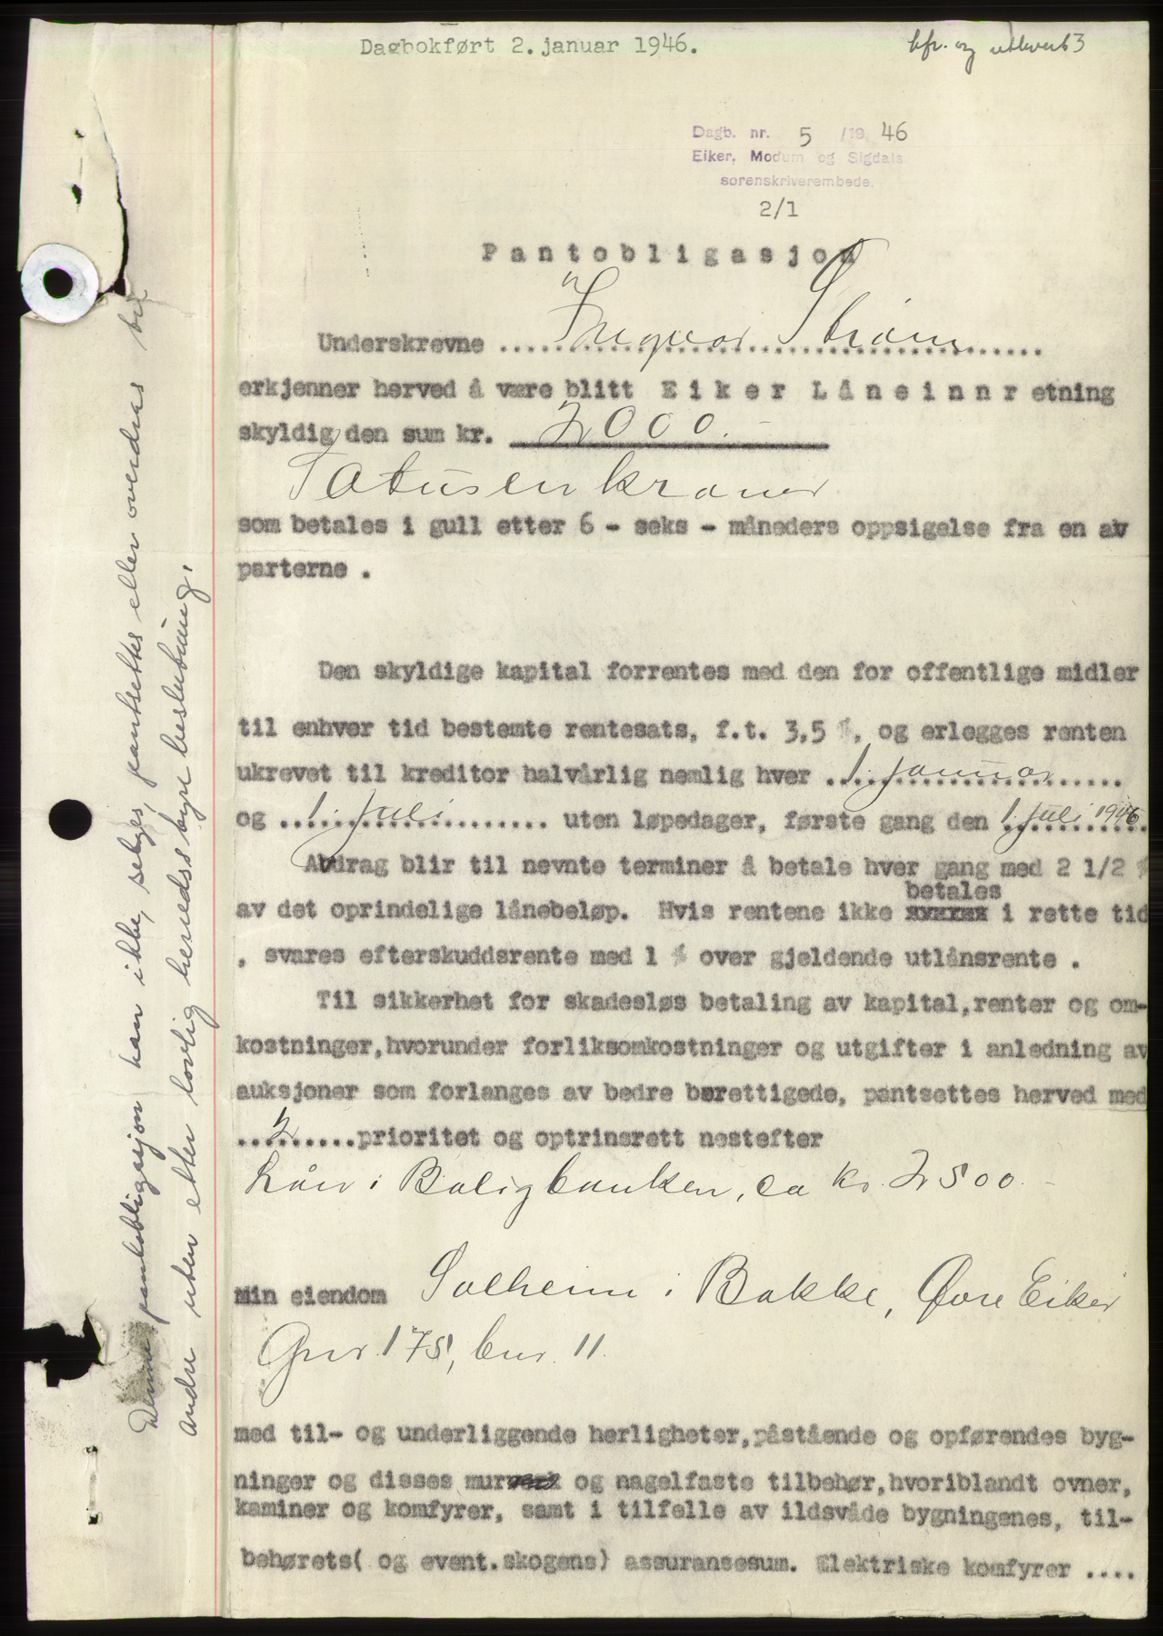 Dagbokført 2. januar 1946.
bfr. og utlevert 3
Dagb. nr. 5 /19 46
Eiker, Modum og Sigdals
sorenskriverembede.
2/1
Pantobligasjon
Underskrevne ... Ingvar Strøm ...
erkjenner herved å være blitt Eiker Låneinnretning
skyldig den sum kr. 2000.-
Totusen kroner
som betales i gull etter 6 - seks - måneders oppsigelse fra en av
parterne .
Den skyldige kapital forrentes med den for offentlige midler
til enhver tid bestemte rentesats, f.t. 3,5 %, og erlegges renten
ukrevet til kreditor halvårlig nemlig hver .. 1. januar ......
og .. 1. juli .......... uten løpedager, første gang den 1. juli 1946.
Avdrag blir til nevnte terminer å betale hver gang med 2 1/2 %
betales
av det oprindelige lånebeløp. Hvis rentene ikke xxxxxx i rette tid
, svares efterskuddsrente med 1 % over gjeldende utlånsrente .
Til sikkerhet for skadesløs betaling av kapital,renter og om-
kostninger,hvorunder forliksomkostninger og utgifter i anledning av
auksjoner som forlanges av bedre berettigede, pantsettes herved med
... 2 ......prioritet og optrinsrett nestefter
Lån i Boligbanken, ca kr. 2500.-
Min eiendom Solheim i Bakke, Øvre Eiker
Gnr. 175, bnr. 11.
med til- og underliggende herligheter,påstående og opførendes byg-
ninger og disses mur og nagelfaste tilbehør,hvoriblandt ovner,
kaminer og komfyrer, samt i tilfelle av ildsvåde bygningenes, til-
behørets( og event.skogens) assuransesum. Elektriske komfyrer ....
Denne pantobligasjon kan ikke, selges, pantsettes eller overdras til
andre uten etter lovlig herredsstyrebeslutning.